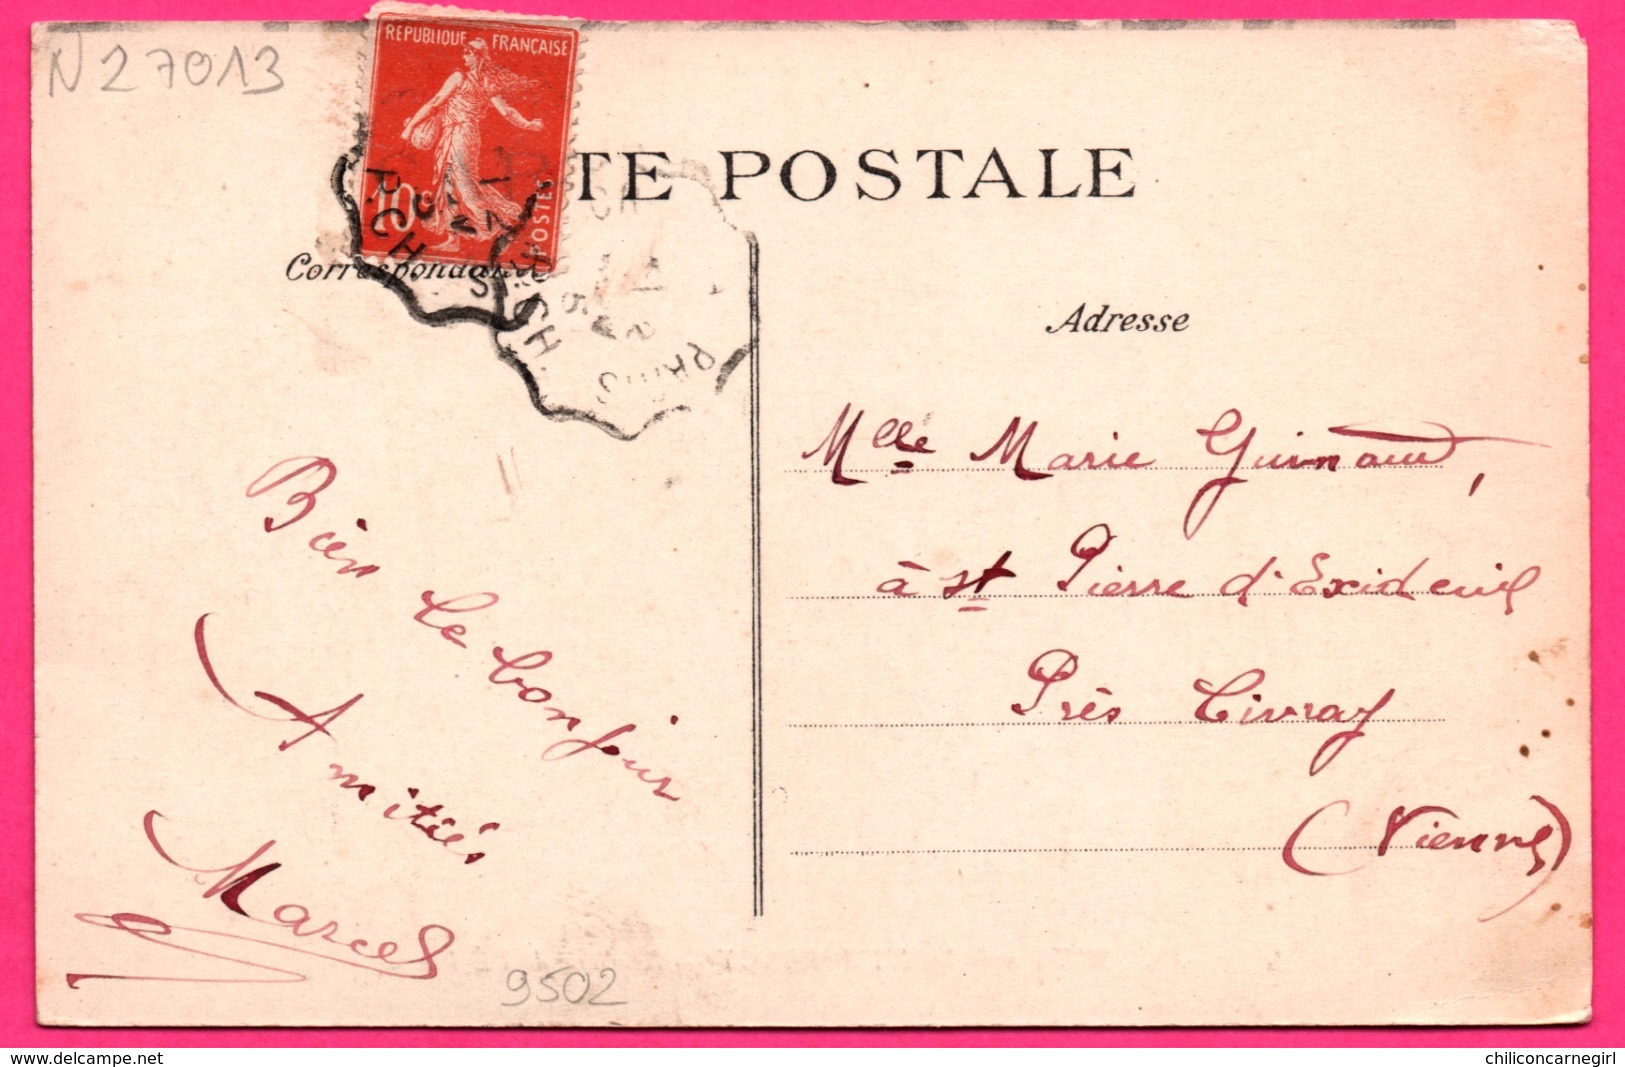 N27013
REPUBLIQUE FRANÇAISE
10c
POSTES
TE POSTALE
Correspondan
Adresse
Bien le bonjour
Amitiés
Marcel
Mlle Marie
à St Pierre d'Exideuil
Près Civray
(Vienne)
9502
www.delcampe.net
chiliconcarnegirl